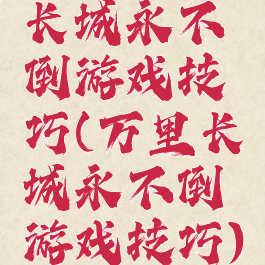 长城永不
倒游戏技
巧(万里长
城永不倒
游戏技巧)